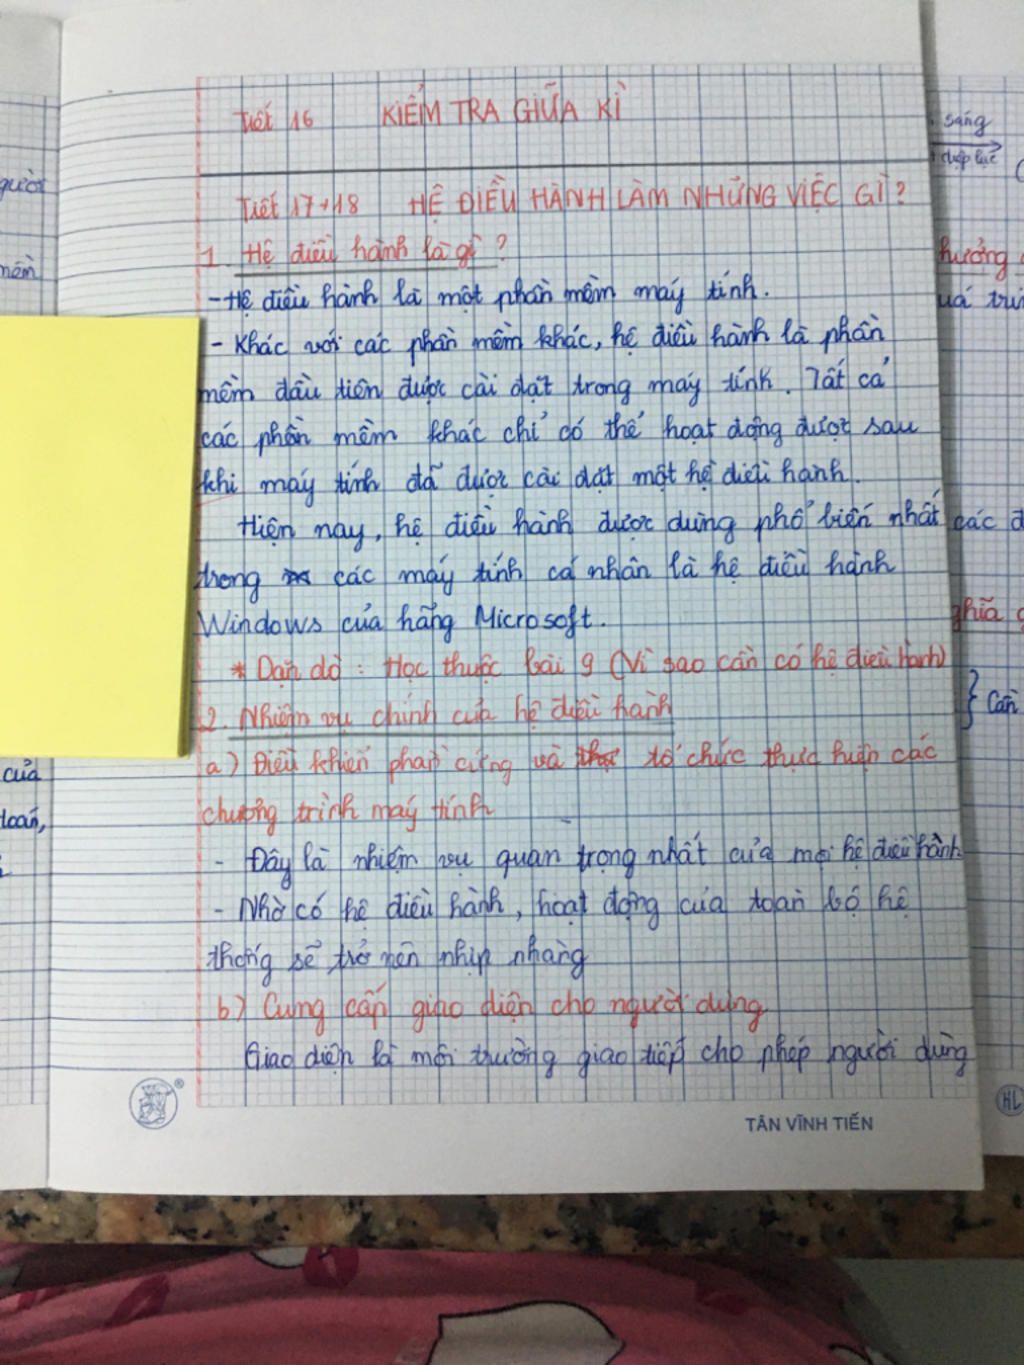 Tiết 16 KIỂM TRA GIỮA KÌ
Tiết 17+18 HỆ ĐIỀU HÀNH LÀM NHỮNG VIỆC GÌ?
1. Hệ điều hành là gì?
- Hệ điều hành là một phần mềm máy tính.
- Khác với các phần mềm khác, hệ điều hành là phần
mềm đầu tiên được cài đặt trong máy tính. Tất cả
các phần mềm khác chỉ có thể hoạt động được sau
khi máy tính đã được cài đặt một hệ điều hành.
Hiện nay, hệ điều hành được dùng phổ biến nhất
trong các máy tính cá nhân là hệ điều hành
Windows của hãng Microsoft.
* Dặn dò: Học thuộc bài 9 (Vì sao cần có hệ điều hành)
2. Nhiệm vụ chính của hệ điều hành
a) Điều khiển phần cứng và tổ chức thực hiện các
chương trình máy tính
- Đây là nhiệm vụ quan trọng nhất của mọi hệ điều hành
- Nhờ có hệ điều hành, hoạt động của toàn bộ hệ
thống sẽ trở nên nhịp nhàng
b) Cung cấp giao diện cho người dùng
Giao diện là môi trường giao tiếp cho phép người dùng
TÂN VĨNH TIẾN
của
toán,
sáng
diệp lục
hưởng
các
Cần
HL